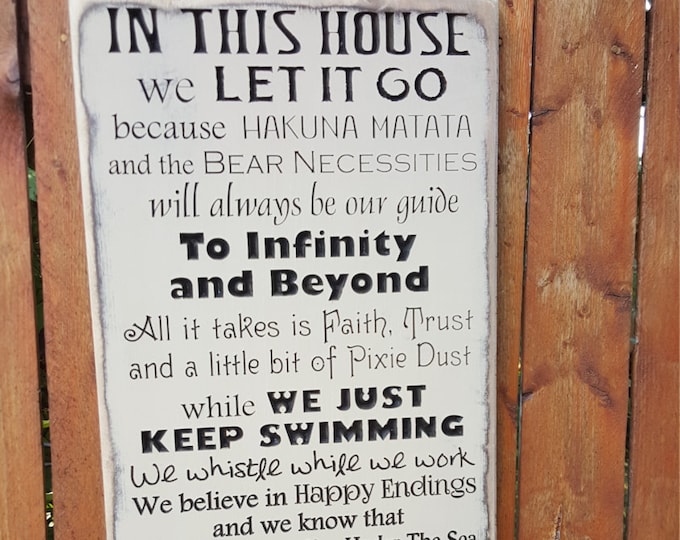 IN THIS HOUSE
we LET IT GO
because HAKUNA MATATA
and the BEAR NECESSITIES
will always be our guide
To Infinity
and Beyond
All it takes is Faith, Trust
and a little bit of Pixie Dust
while WE JUST
KEEP SWIMMING
We whistle while we work
We believe in Happy Endings
and we know that
Under The Sea